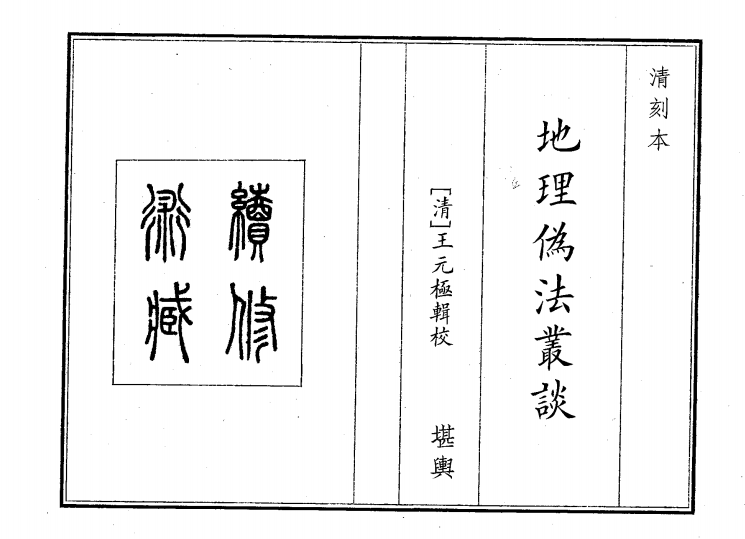 清刻本
地理偽法叢談
[清]王元極輯校 堪輿
續修
術藏